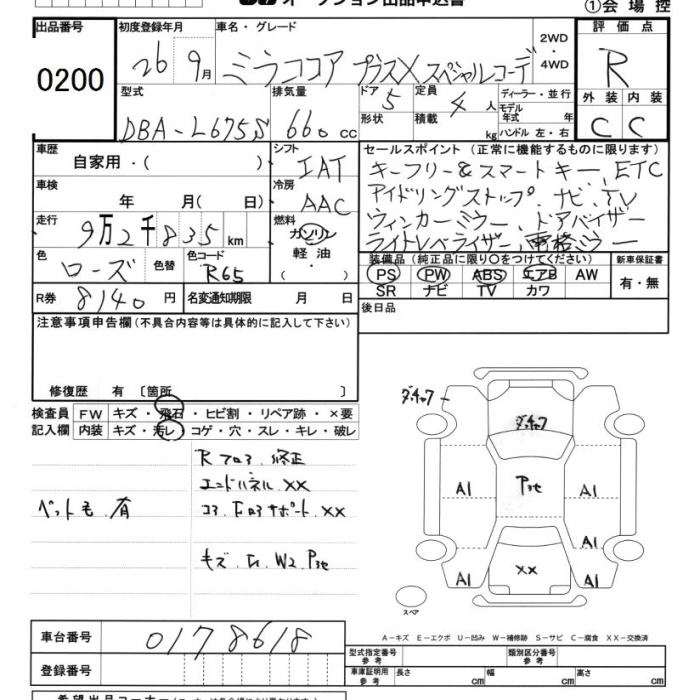 オークション出品申込書
①会場控
出品番号 0200
初度登録年月 26 9月
車名・グレード ミラココア プラスX スペシャルコーデ
2WD・4WD
評価点 R
外装 内装
C C
型式 DBA-L675S
排気量 660 cc
ドア 5
形状
定員 4 人
積載 kg
ディーラー・並行
モデル年式 年
ハンドル 左・右
車歴 自家用・( )
シフト IAT
車検 年 月( 日)
冷房 AAC
走行 9万2千835km
燃料 ガソリン・軽油・( )
色 ローズ
色替
色コード R65
R券 8140円
名変通知期限 月 日
セールスポイント(正常に機能するものに限ります)
キーフリー&スマートキー、ETC
アイドリングストップ、ナビ、TV
ウィンカーミラー、ドアバイザー
ライトレベライザー、
装備品(純正品に限り○をつけてください)
PS PW ABS エアB AW
SR ナビ TV カワ
新車保証書
有・無
後日品
注意事項申告欄(不具合内容等は具体的に記入して下さい)
修復歴 有 〔箇所 〕
検査員記入欄
FW キズ・飛石・ヒビ割・リペア跡・×要
内装 キズ・汚レ・コゲ・穴・スレ・キレ・破レ
ペット毛.有
Rフロア.修正
エンドパネル.××
コア.サポート.××
キズ. W2
A1
A1
A1
A1
A1
××
スペア
A-キズ E-エクボ U-凹み W-補修跡 S-サビ C-腐食 XX-交換済
車台番号 0178618
登録番号
型式指定番号 参考
類別区分番号 参考
車庫証明用 参考
長さ cm 幅 cm 高さ cm
希望出品コーナー